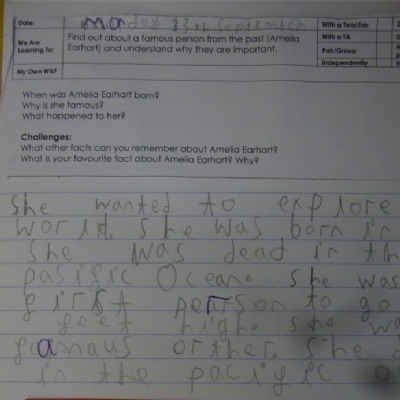 Date: monday 23th September
With a Teacher
We Are Learning to:
Find out about a famous person from the past (Amelia Earhart) and understand why they are important.
With a TA
Pair/Group
Independently
My Own WILF
When was Amelia Earhart born?
Why is she famous?
What happened to her?
Challenges:
What other facts can you remember about Amelia Earhart?
What is your favourite fact about Amelia Earhart? Why?
She wanted to explore
world. she was born in
She was dead in th
pasific Ocean. she was
first person to go
feet high. she w
famaus orther. she
in the pacific o